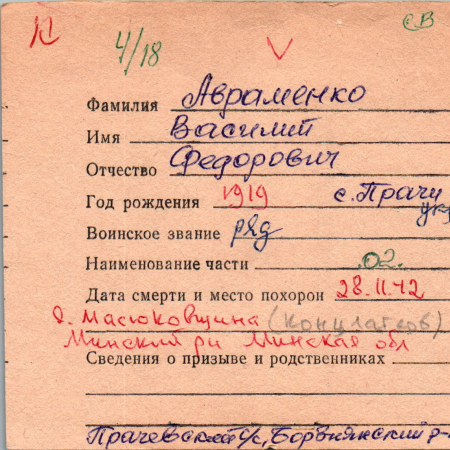 4/18 СВ
V
Фамилия Авраменко
Имя Василий
Отчество Федорович
Год рождения 1919 с. Прачи
укр
Воинское звание ряд
Наименование части .02.
Дата смерти и место похорон 28.11.42
д. Масюковщина (концлагерь)
Минский р-н Минская обл
Сведения о призыве и родственниках
Прачевский с/с, Борзнянский р-